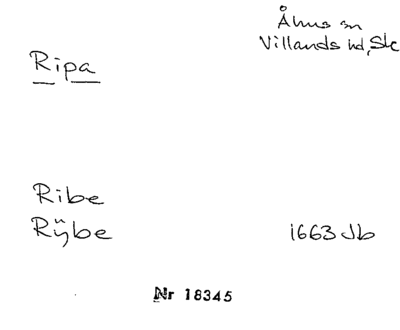 Åhus sn
Villands hd, Sk
Ripa
Ribe
Rÿbe 1663 Jb
Nr 18345